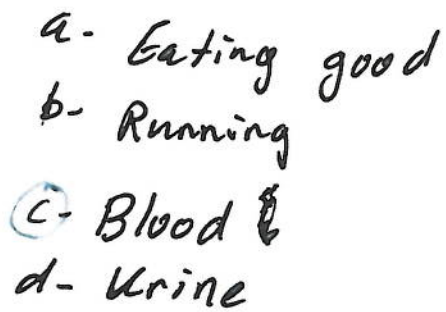 a- Eating good
b- Running
c- Blood
d- Urine